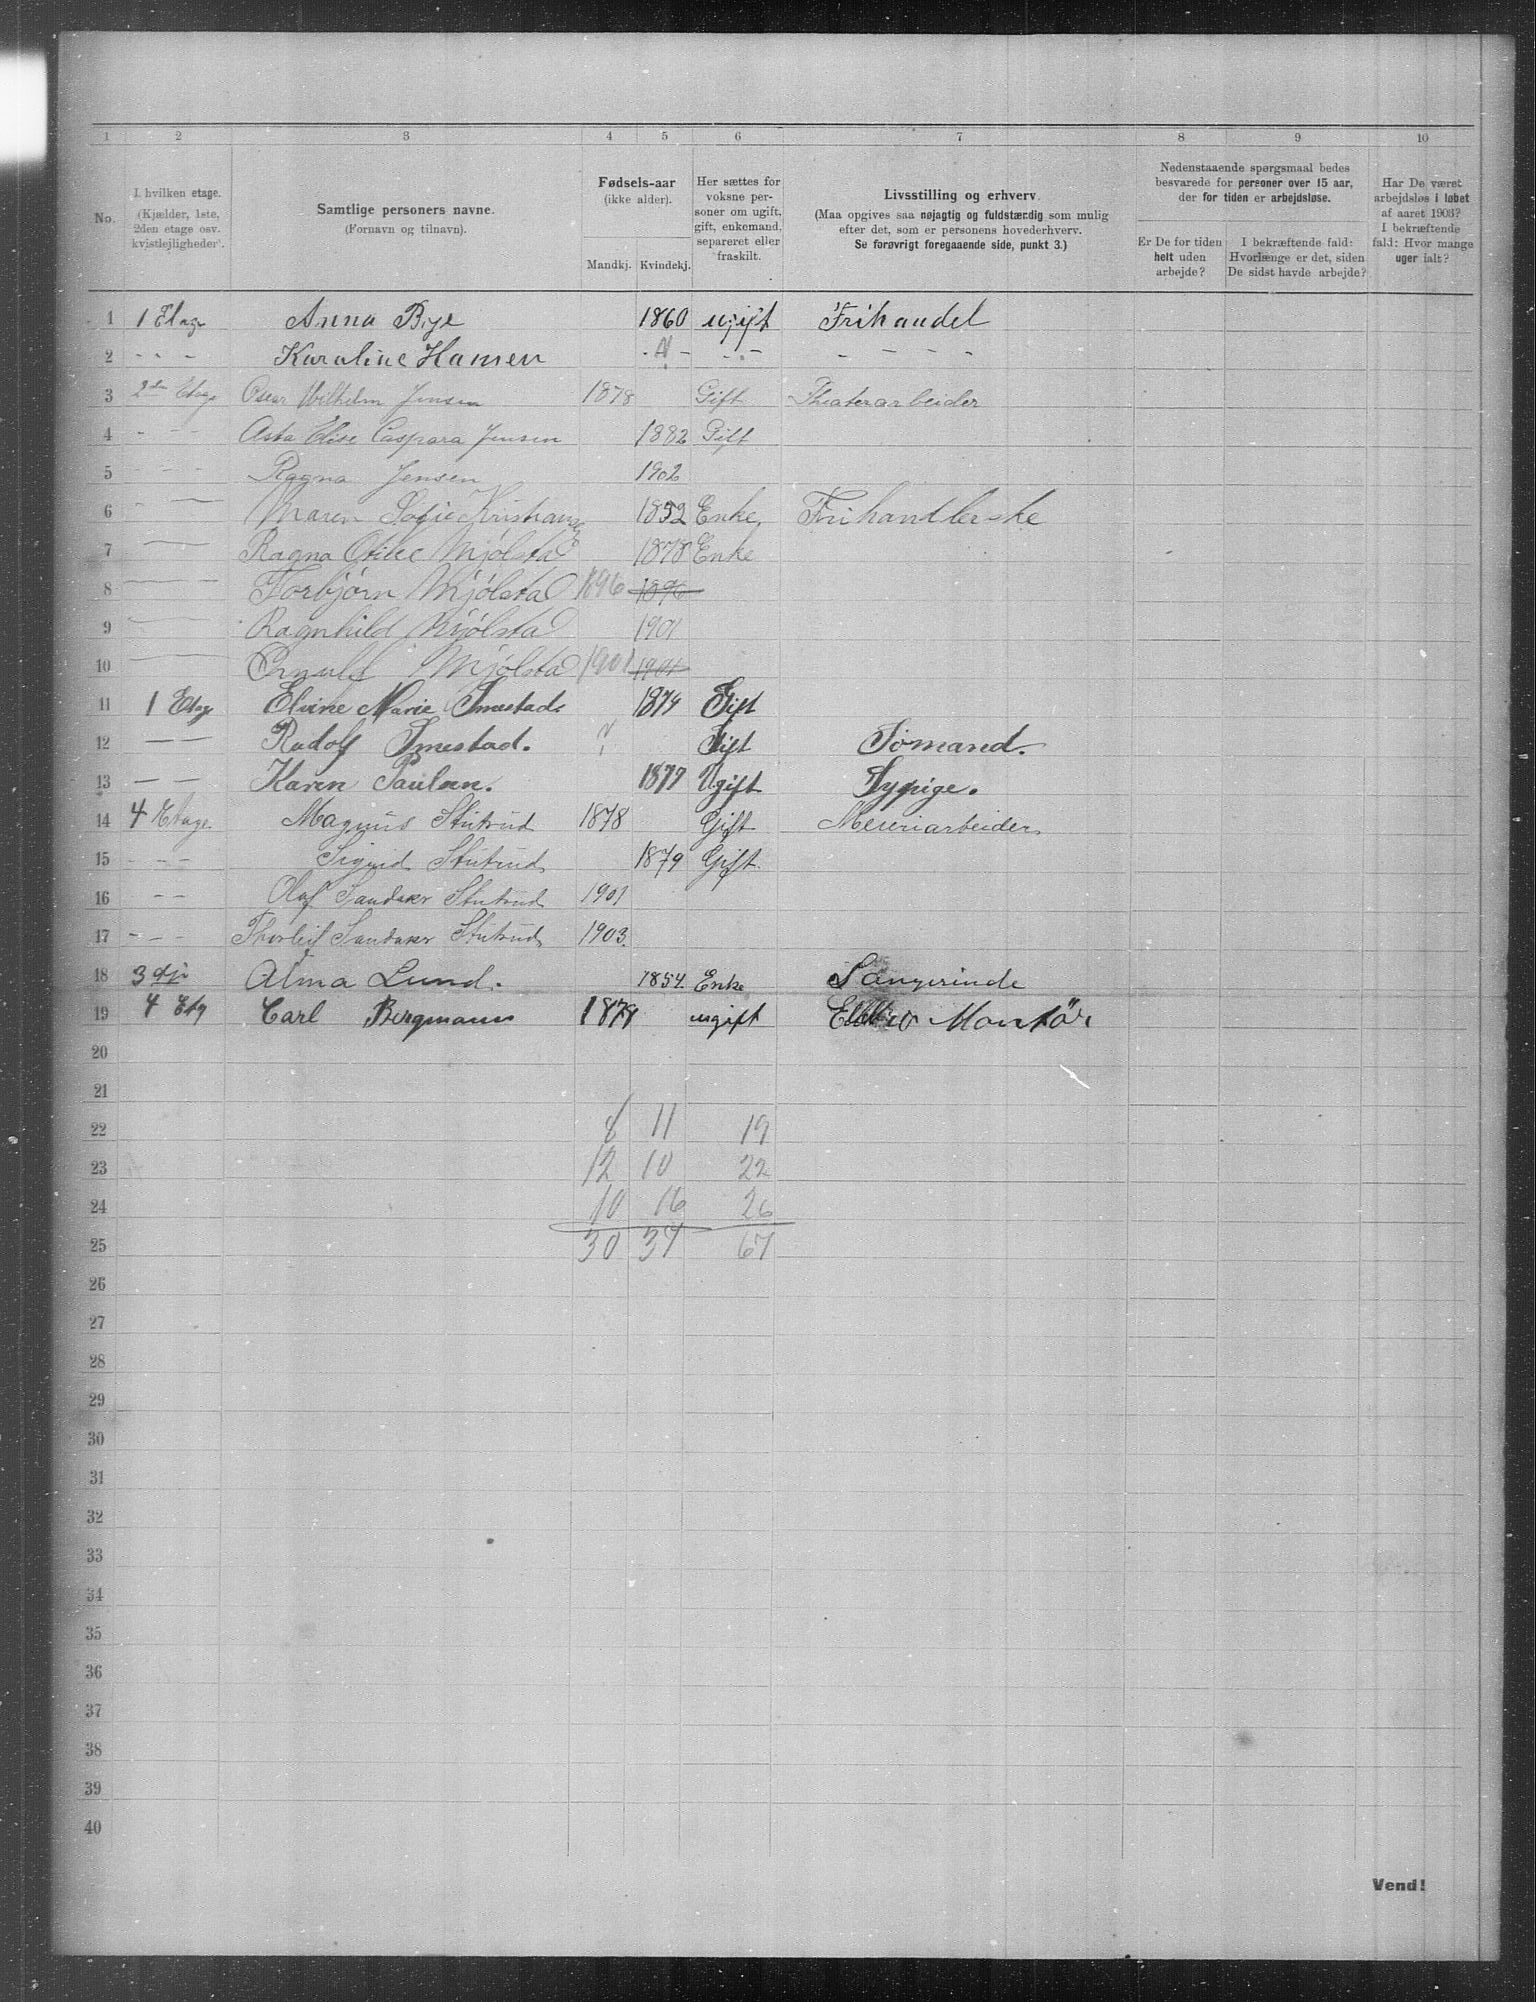 1 2 3 4 5 6 7 8 9 10
No.
I hvilken etage. (Kjælder, 1ste, 2den etage osv. kvistlejligheder).
Samtlige personers navne. (Fornavn og tilnavn).
Fødsels-aar (ikke alder). Mandkj. Kvindekj.
Her sættes for voksne personer om ugift, gift, enkemand, separeret eller fraskilt.
Livsstilling og erhverv.
(Maa opgives saa nøjagtig og fuldstændig som mulig efter det, som er personens hovederhverv.
Se forøvrigt foregaaende side, punkt 3.)
Nedenstaaende spørgsmaal bedes besvarede for personer over 15 aar, der for tiden er arbejdsløse.
Er De for tiden helt uden arbejde?
I bekræftende fald: Hvorlænge er det, siden De sidst havde arbejde?
Har De været arbejdsløs i løbet af aaret 1903? I bekræftende fald: Hvor mange uger ialt?
1 1 Etage Anna Bye 1860 ugift Frihandel
2 - - - Karaline Hansen - - - - - - -
3 2den Etage Oscar Wilhelm Jensen 1878 Gift Theaterarbeider
4 - - - Asta Elise Caspara Jensen 1882 Gift
5 - - - Ragna Jensen 1902
6 Maren Sofie 1852 Enke Frihandlerske
7 Ragna Otilie Mjölstad 1878 Enke
8 Torbjörn Mjölstad 1896 1896
9 Ragnhild Mjölstad 1901
10 Mjölstad 1901 1901
11 1 Etage Elvine Marie 1874 Gift
12 - - Rudolf ? Gift Sömand.
13 - - Karen Paulsen. 1877 Ugift Sypige.
14 4 Etage Magnus Stutrud 1878 Gift Meieriarbeider
15 - - - Sigrid Stutrud 1879 Gift
16 - - Olaf Sandaker Stutrud 1901
17 - - - Thorleif Sandaker Stutrud 1903.
18 3 Alma Lund. 1854. Enke Sangerinde
19 4 Etg Carl Bergmann 1879 ugift Montör
20
21
22 8 11 19
23 12 10 22
24 10 16 26
25 30 37 67
26
27
28
29
30
31
32
33
34
35
36
37
38
39
40
Vend!